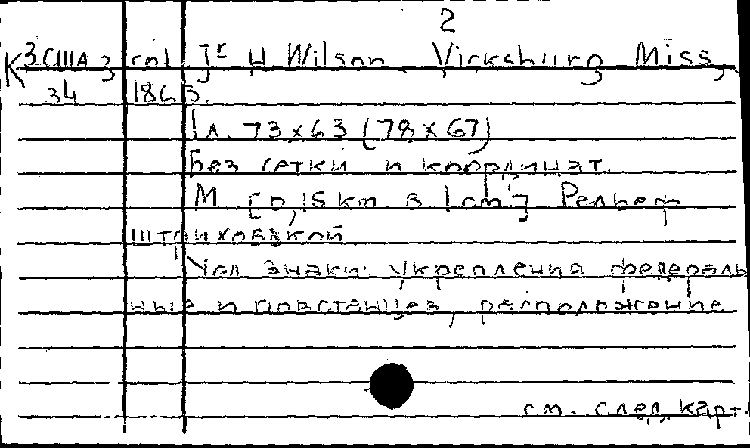 2
К 3 США 3 col Jr H Wilson. Vicksburg Miss,
34 1863.
1 л. 73 x 63 (78 x 67)
Без сетки и координат.
М [0,15 km в 1 cm] Рельеф
штриховкой.
Усл знаки: укрепления федераль
ные и повстанцев, расположение
см. след. карт.